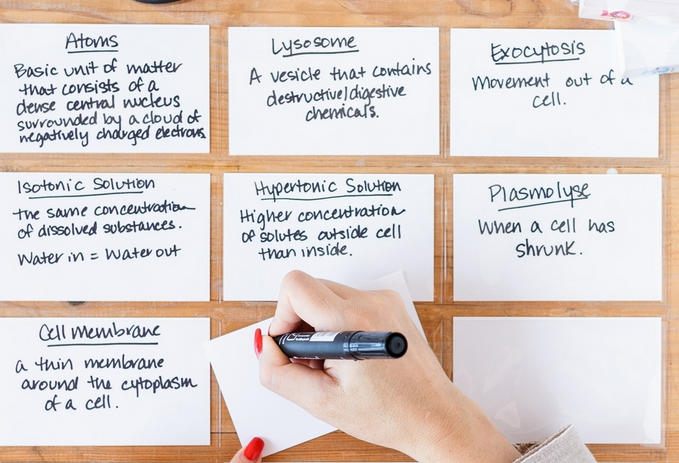 Atoms
Basic unit of matter
that consists of a
dense central nucleus
surrounded by a cloud of
negatively charged electrons
Lysosome
A vesicle that contains
destructive/digestive
chemicals.
Exocytosis
Movement out of a
cell.
Isotonic Solution
the same concentration
of dissolved substances.
Water in = Water out
Hypertonic Solution
Higher concentration
of solutes outside cell
than inside.
Plasmolyse
When a cell has
shrunk.
Cell membrane
a thin membrane
around the cytoplasm
of a cell.